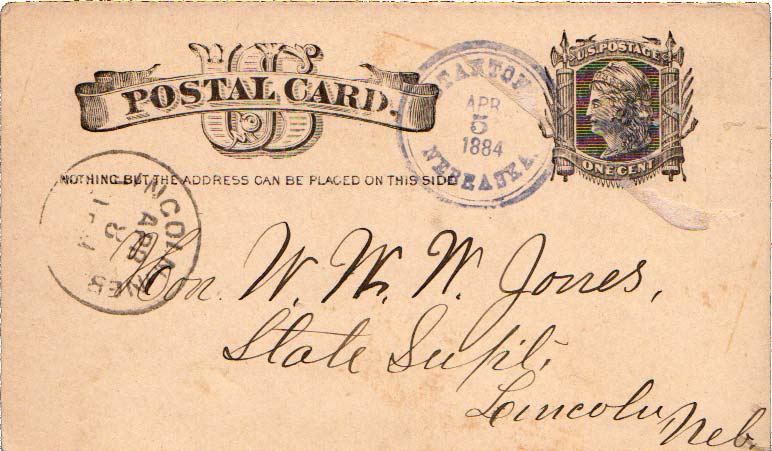 U.S. POSTAGE
POSTAL CARD.
ONE CENT
NOTHING BUT THE ADDRESS CAN BE PLACED ON THIS SIDE
APR
5
1884
NEBRASKA
APR
NEB
Hon. W. W. W. Jones,
State Supt.
Lincoln, Neb.